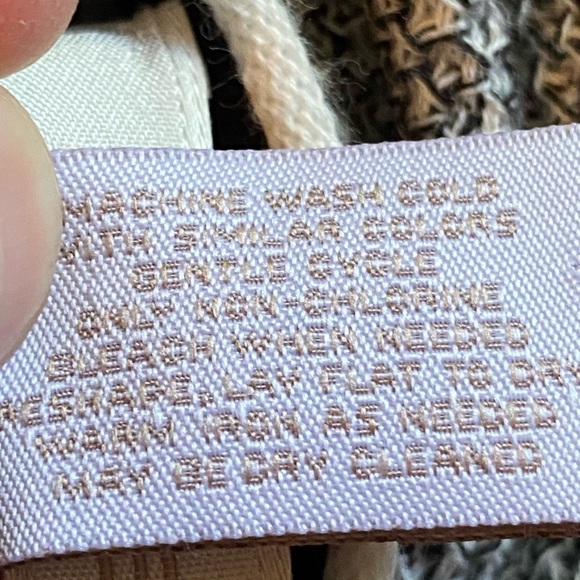 MACHINE WASH COLD
WITH SIMILAR COLORS
GENTLE CYCLE
ONLY NON-CHLORINE
BLEACH WHEN NEEDED
RESHAPE, LAY FLAT TO DRY
WARM IRON AS NEEDED
MAY BE DRY CLEANED